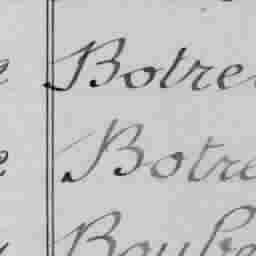 Botre
Botre
Boube